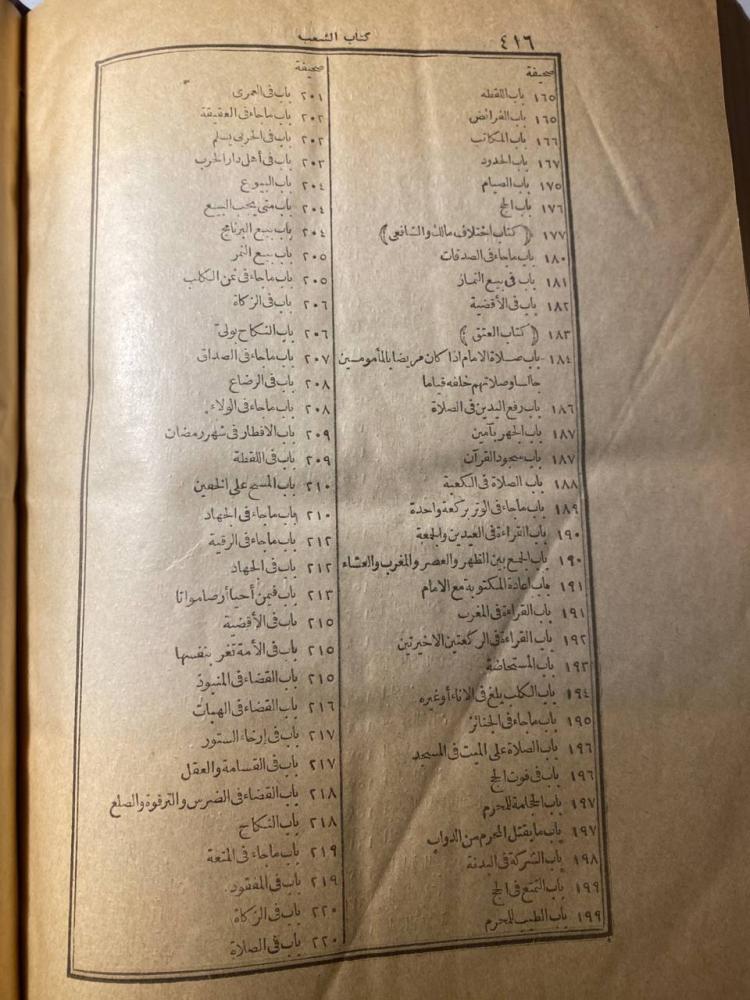 ٤١٦
كتاب الشعب
صحيفة
١٦٥ باب اللقطه
١٦٥ باب الفرائض
١٦٦ باب المكاتب
١٦٧ باب الحدود
١٧٥ باب الصيام
١٧٦ باب الحج
١٧٧ ﴿كتاب اختلاف مالك والشافعى﴾
١٨٠ باب ماجاء فى الصدقات
١٨١ باب فى بيع الثمار
١٨٢ باب فى الأقضية
١٨٣ ﴿كتاب العتق﴾
١٨٤ باب صلاة الامام اذا كان مريضا بالمأمومين
جالسا وصلاتهم خلفه قياما
١٨٦ باب رفع اليدين فى الصلاة
١٨٧ باب الجهر بآمين
١٨٧ باب سجود القرآن
١٨٨ باب الصلاة فى الكعبة
١٨٩ باب ماجاء فى الوتر بركعة واحدة
١٩٠ باب القراءة فى العيدين والجمعة
١٩٠ باب الجمع بين الظهر والعصر والمغرب والعشاء
١٩١ باب اعادة المكتوبة مع الامام
١٩١ باب القراءة فى المغرب
١٩٢ باب القراءة فى الركعتين الاخيرتين
١٩٣ باب المستحاضة
١٩٤ باب الكلب يلغ فى الاناء أو غيره
١٩٥ باب ماجاء فى الجنائز
١٩٦ باب الصلاة على الميت فى المسجد
١٩٦ باب فى فوت الحج
١٩٧ باب الحجامة للمحرم
١٩٧ باب ما يقتل المحرم من الدواب
١٩٨ باب الشركة فى البدنة
١٩٩ باب التمتع فى الحج
١٩٩ باب الطيب للمحرم
صحيفة
٢٠١ باب فى العمرى
٢٠٢ باب ماجاء فى العقيقة
٢٠٢ باب فى الحربى يسلم
٢٠٣ باب فى أهل دار الحرب
٢٠٤ باب البيوع
٢٠٤ باب متى يجب البيع
٢٠٤ باب بيع البرنامج
٢٠٥ باب بيع الثمر
٢٠٥ باب ماجاء فى ثمن الكلب
٢٠٦ باب فى الزكاة
٢٠٦ باب النكاح بولى
٢٠٧ باب ماجاء فى الصداق
٢٠٨ باب فى الرضاع
٢٠٨ باب ماجاء فى الولاء
٢٠٩ باب الافطار فى شهر رمضان
٢٠٩ باب فى اللقطة
٢١٠ باب المسح على الخفين
٢١٠ باب ماجاء فى الجهاد
٢١٢ باب ماجاء فى الرقية
٢١٢ باب فى الجهاد
٢١٣ باب فيمن أحيا أرضا مواتا
٢١٥ باب فى الأقضية
٢١٥ باب فى الأمة تغر بنفسها
٢١٥ باب القضاء فى المنبوذ
٢١٦ باب القضاء فى الهبات
٢١٧ باب فى إرخاء الستور
٢١٧ باب فى القسامة والعقل
٢١٨ باب القضاء فى الضرس والترقوة والضلع
٢١٨ باب النكاح
٢١٩ باب ماجاء فى المتعة
٢١٩ باب فى المفقود
٢٢٠ باب فى الزكاة
٢٢٠ باب فى الصلاة